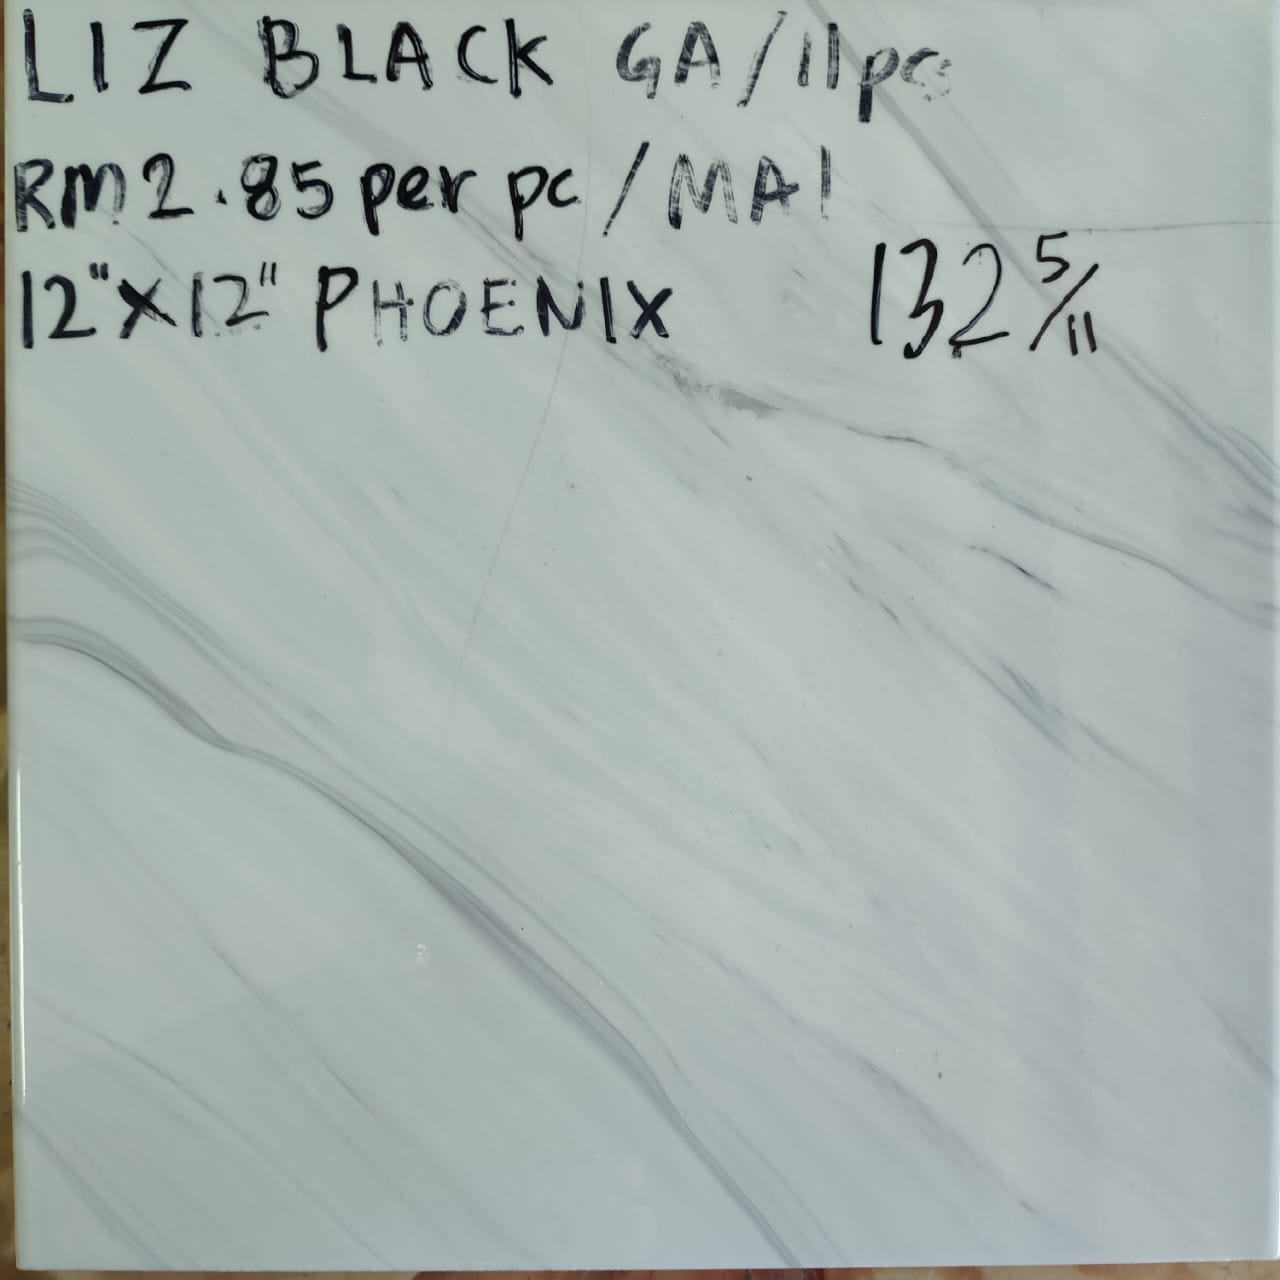 LIZ BLACK GA/11pc
RM2.85 per pc/MAI
12"X12" PHOENIX
132 5/11